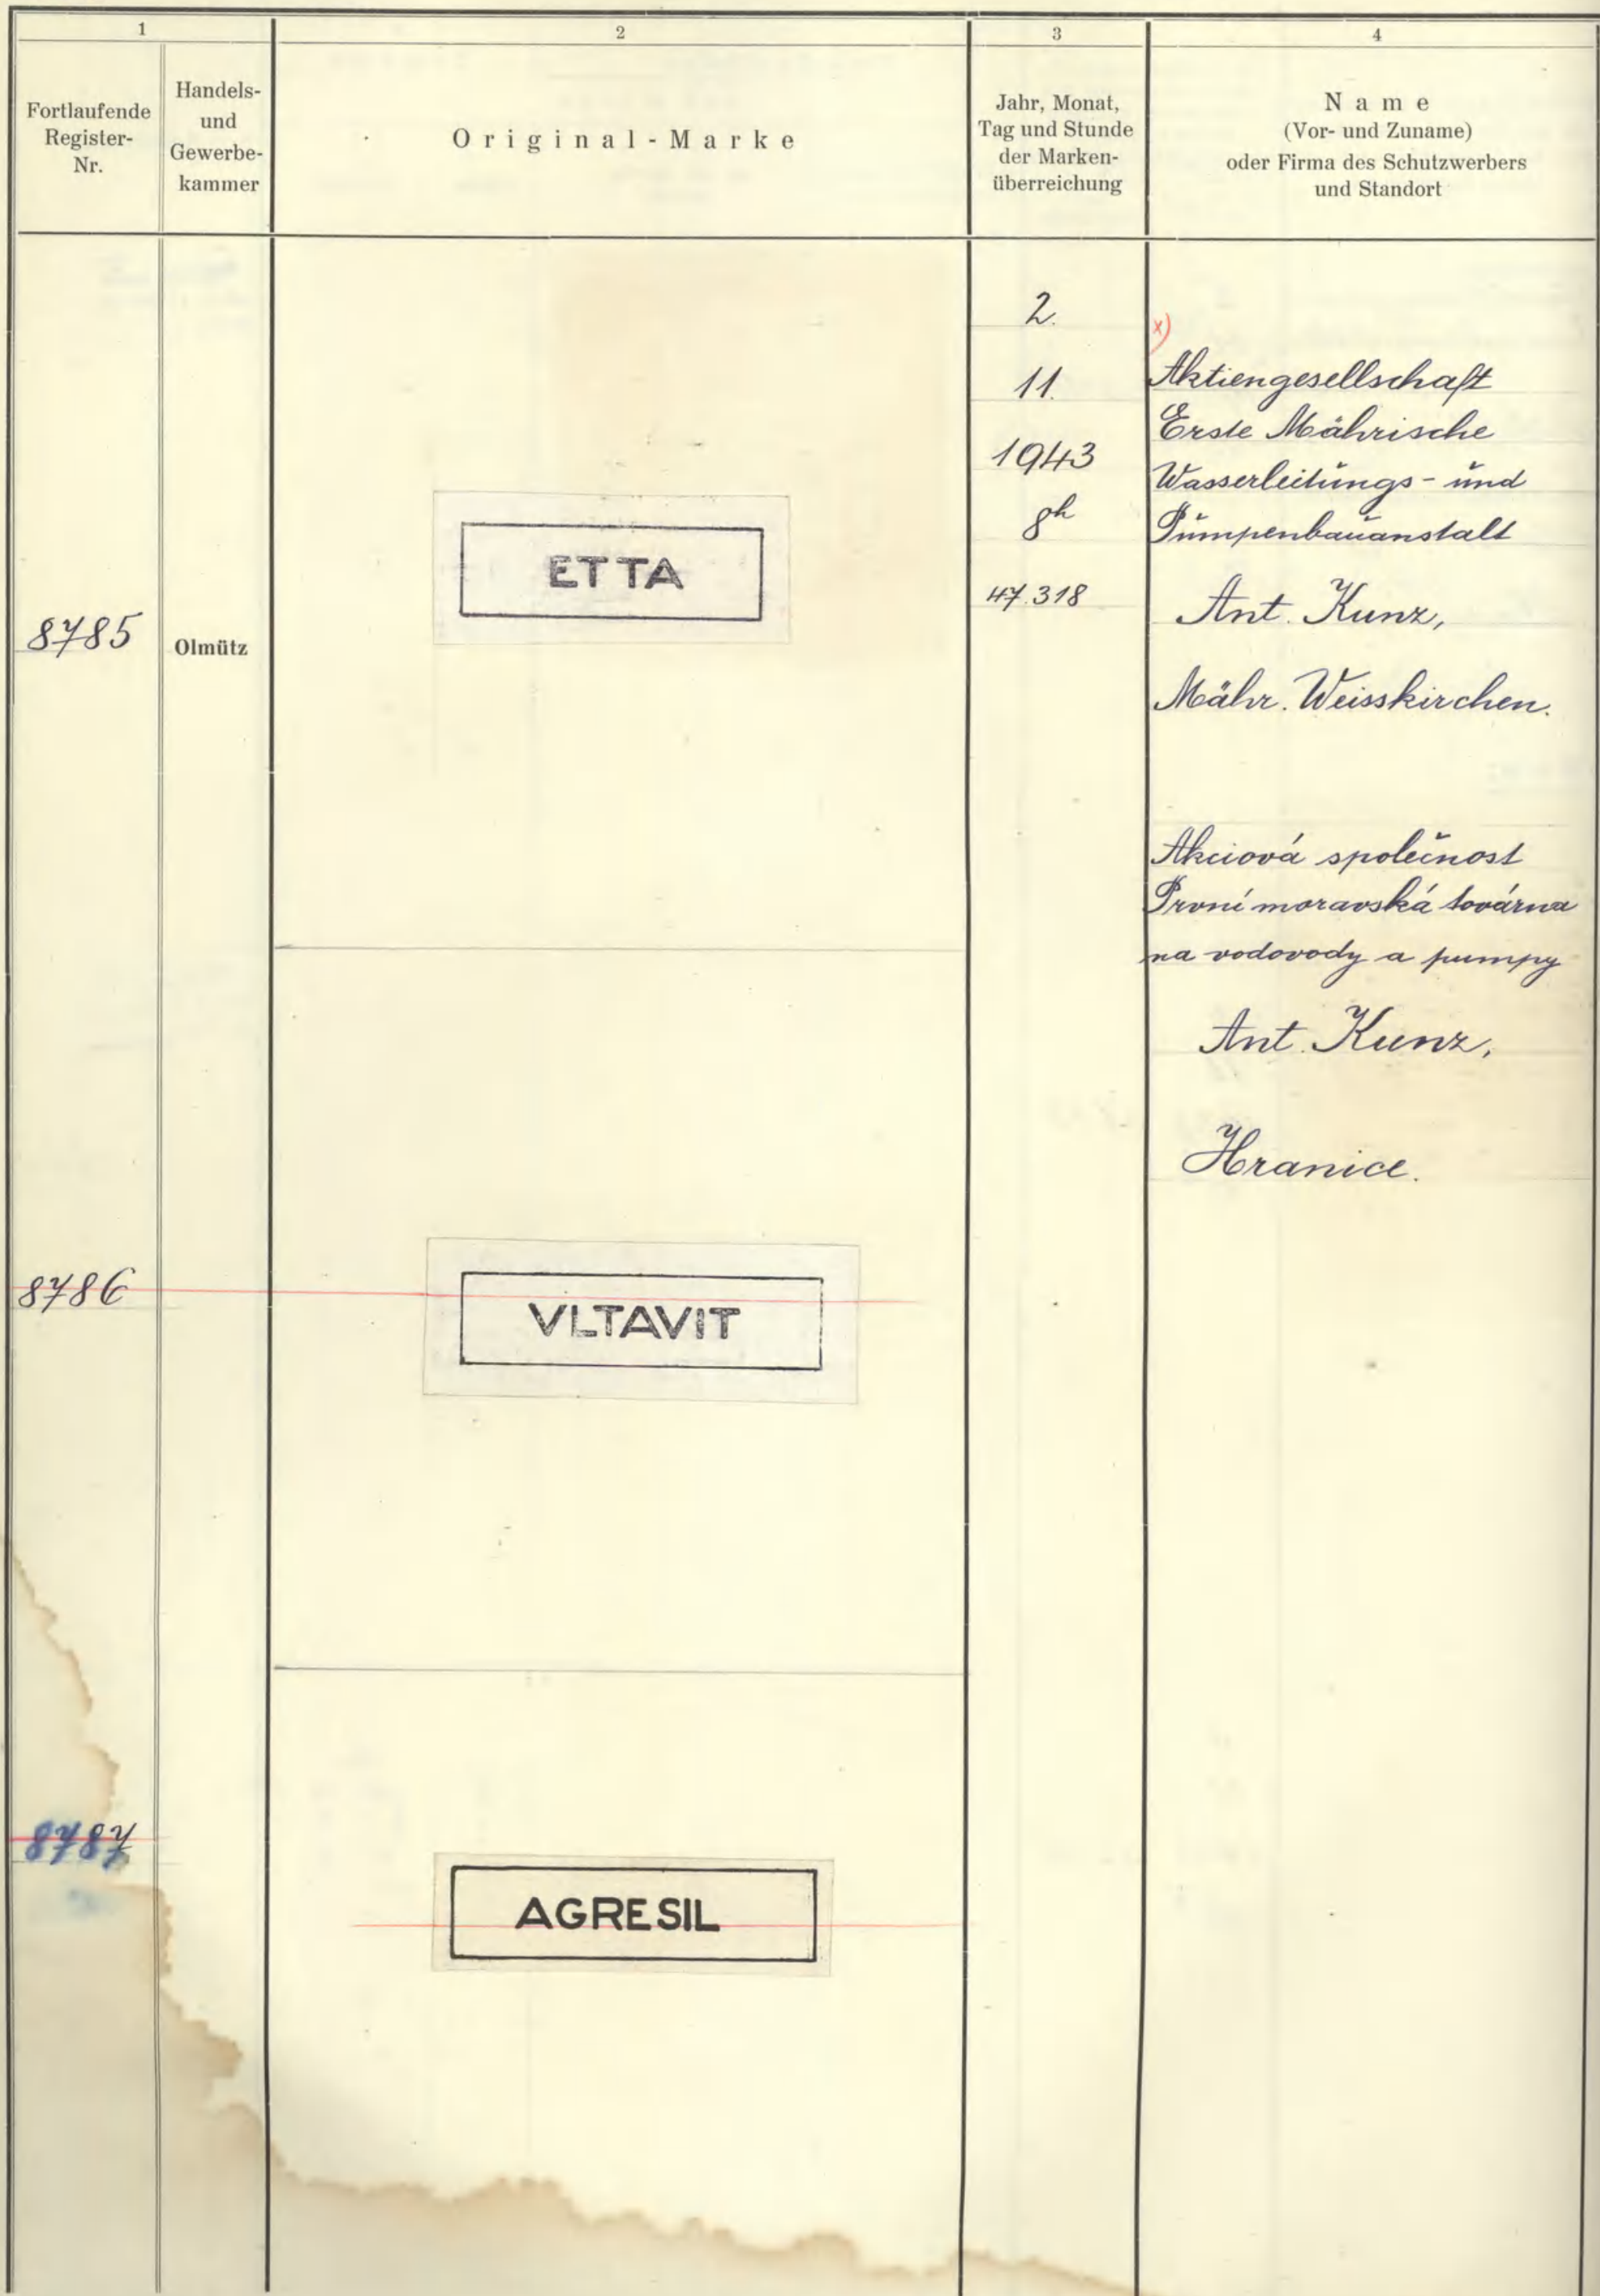 1
2
3
4
Fortlaufende
Register-
Nr.
Handels-
und
Gewerbe-
kammer
Original-Marke
Jahr, Monat,
Tag und Stunde
der Marken-
überreichung
Name
(Vor- und Zuname)
oder Firma des Schutzwerbers
und Standort
8785
Olmütz
ETTA
2.
11.
1943
8h
47.318
x)
Aktiengesellschaft
Erste Mährische
Wasserleitungs- und
Pumpenbauanstalt
Ant. Kunz,
Mähr. Weisskirchen.
Akciová společnost
První moravská továrna
na vodovody a pumpy
Ant. Kunz,
Hranice.
8786
VLTAVIT
8787
AGRESIL